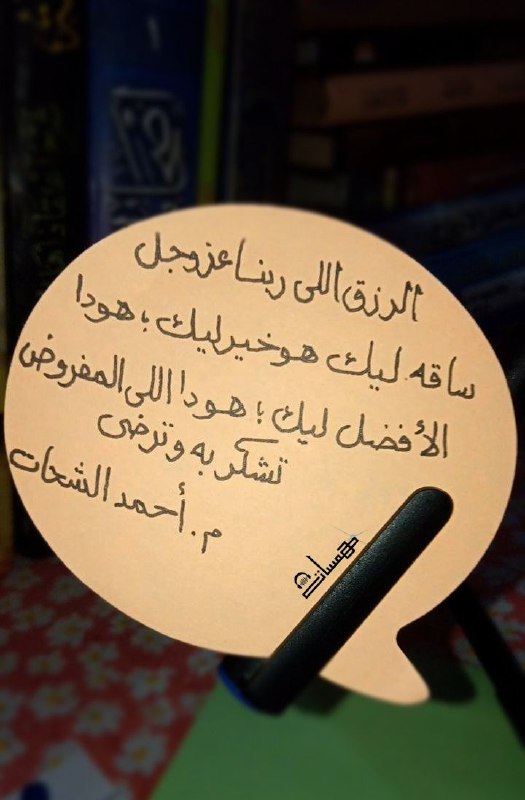 الرزق اللى ربنا عزوجل
ساقه ليك هو خير ليك ؛ هو دا
الأفضل ليك ؛ هو دا اللى المفروض
تشكر به وترضى
م. أحمد الشحات
همسات